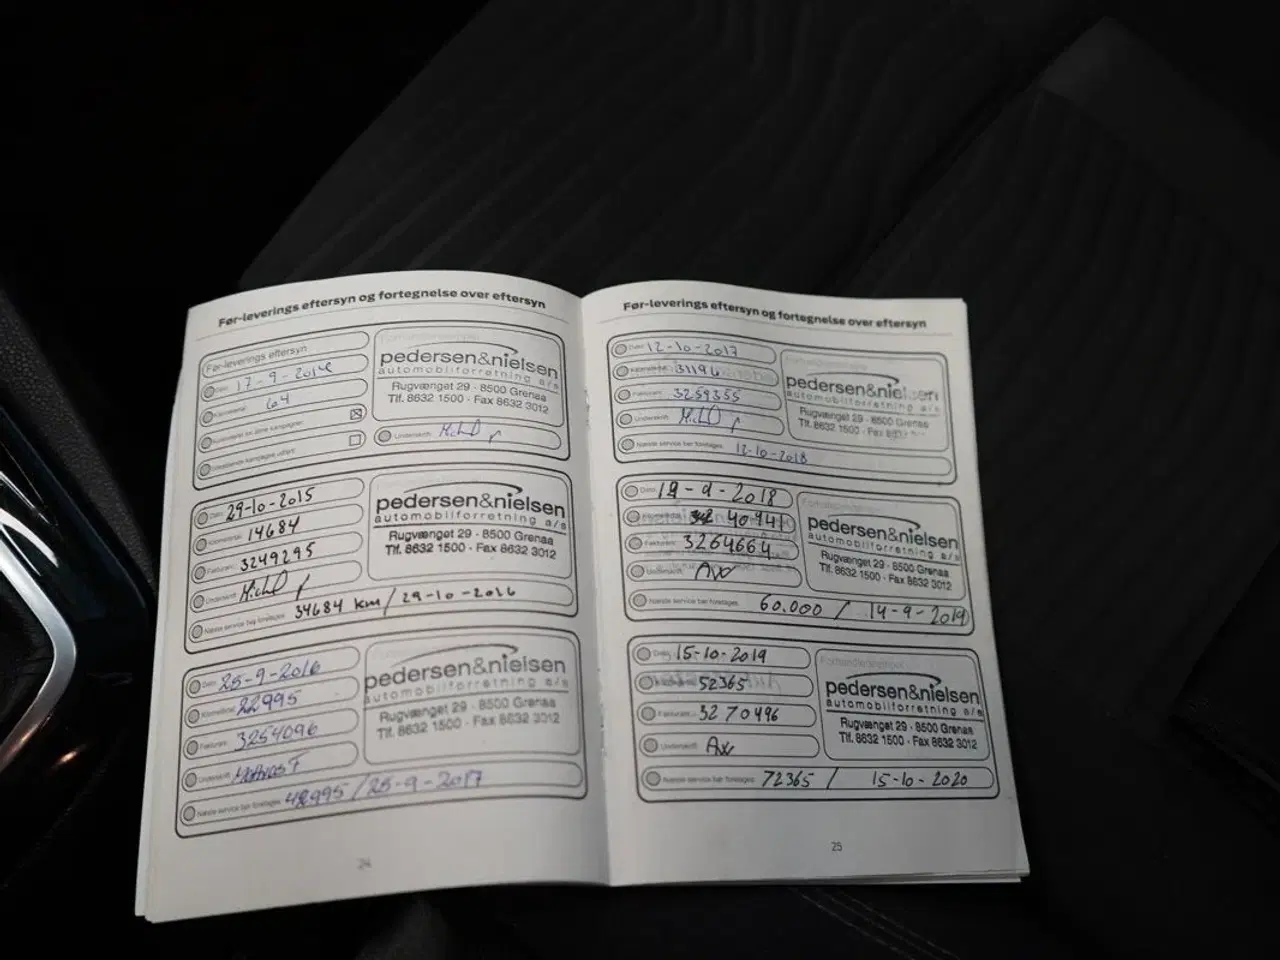 Før-leverings eftersyn og fortegnelse over eftersyn
Før-leverings eftersyn
Dato: 17-9-2014
Kilometertal:
Underskrift:
pedersen&nielsen
automobilforretning a/s
Rugvænget 29 · 8500 Grenaa
Tlf. 8632 1500 · Fax 8632 3012
Dato: 29-10-2015
Kilometertal: 14684
Fakturanr.: 3249295
Underskrift:
Næste service bør foretages: 34684 km / 29-10-2016
pedersen&nielsen
automobilforretning a/s
Rugvænget 29 · 8500 Grenaa
Tlf. 8632 1500 · Fax 8632 3012
Dato: 25-9-2016
Kilometertal: 22995
Fakturanr.: 3254096
Underskrift:
Næste service bør foretages: 42995 / 25-9-2017
pedersen&nielsen
automobilforretning a/s
Rugvænget 29 · 8500 Grenaa
Tlf. 8632 1500 · Fax 8632 3012
24
Før-leverings eftersyn og fortegnelse over eftersyn
Dato: 12-10-2017
Kilometertal: 31196
Fakturanr.: 3259355
Underskrift:
Næste service bør foretages: 12-10-2018
pedersen&nielsen
automobilforretning a/s
Rugvænget 29 · 8500 Grenaa
Tlf. 8632 1500 · Fax 8632
Dato: 19-9-2018
Kilometertal: 40941
Fakturanr.: 3264664
Underskrift:
Næste service bør foretages: 60.000 / 14-9-2019
pedersen&nielsen
automobilforretning a/s
Rugvænget 29 · 8500 Grenaa
Tlf. 8632 1500 · Fax 8632 3012
Dato: 15-10-2019
Kilometertal: 52365
Fakturanr.: 3270496
Underskrift:
Næste service bør foretages: 72365 / 15-10-2020
pedersen&nielsen
automobilforretning a/s
Rugvænget 29 · 8500 Grenaa
Tlf. 8632 1500 · Fax 8632 3012
25